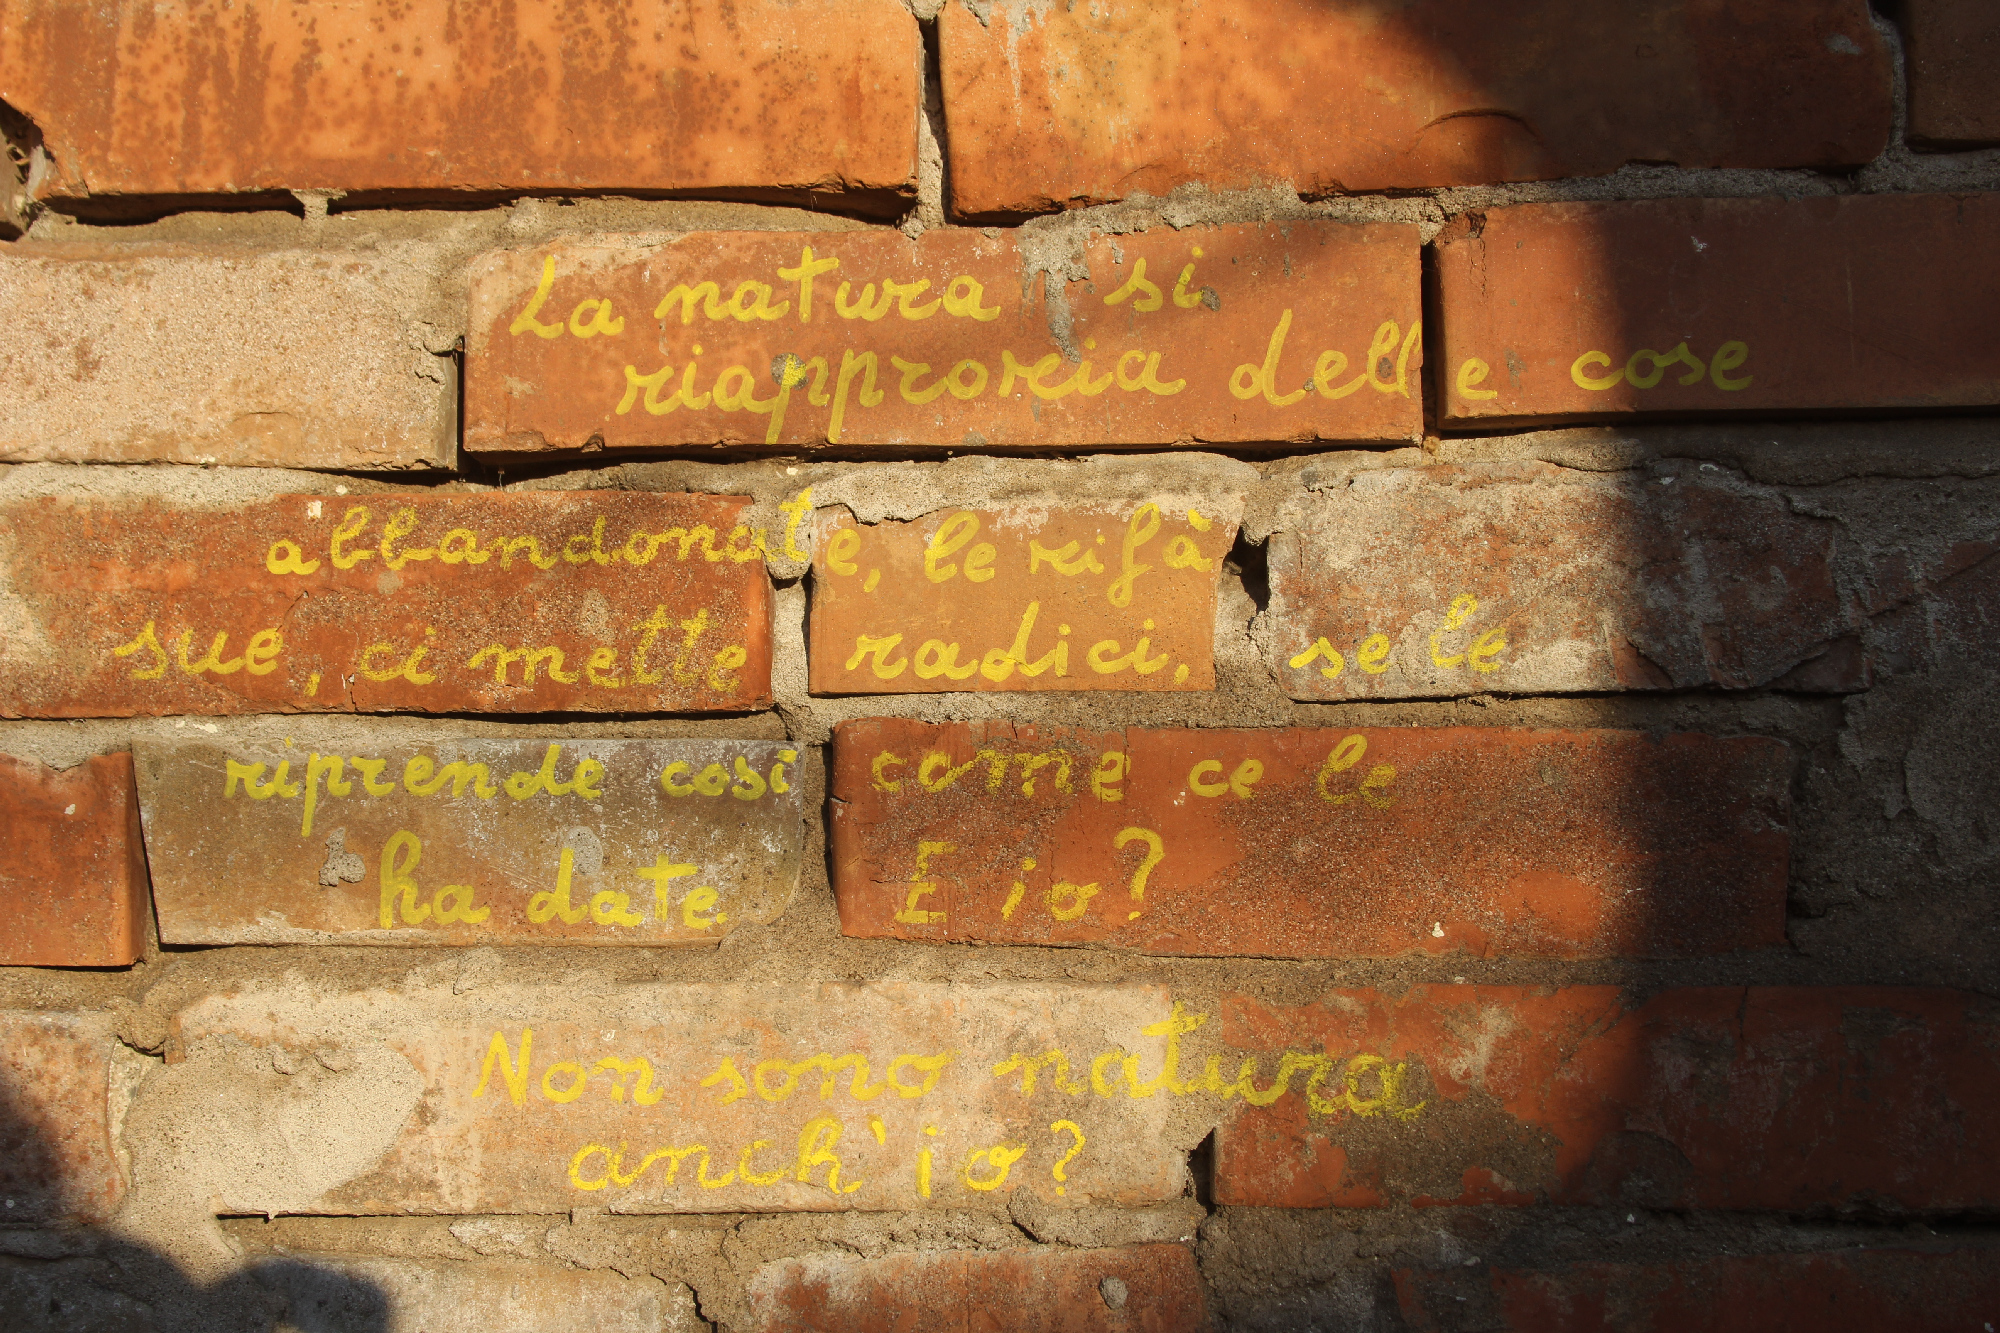 La natura si
riapproxcia delle cose
abbandonate, le rifà
sue, ci mette radici, se le
riprende così come ce le
ha date. E io?
Non sono natura
anch'io?